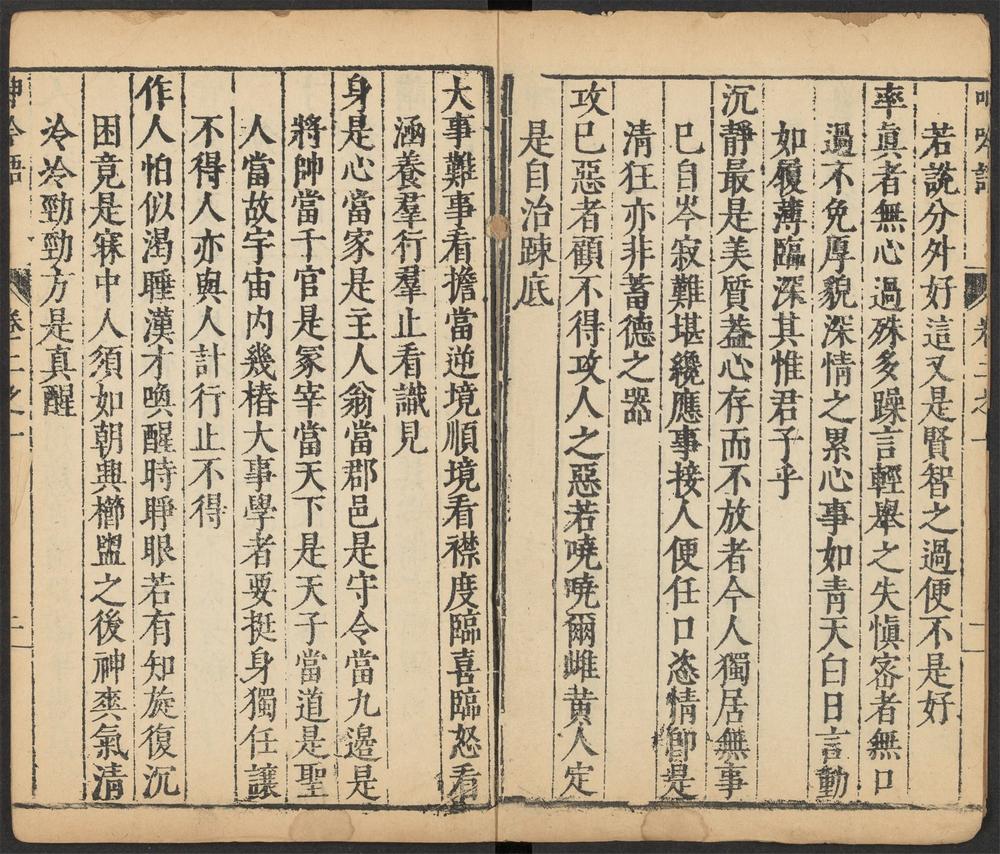 呻吟語
卷二之一
二
若說分外好這又是賢智之過便不是好
率真者無心過殊多躁言輕舉之失慎密者無口
過不免厚貌深情之累心事如青天白日言動
如履薄臨深其惟君子乎
沉靜最是美質葢心存而不放者今人獨居無事
巳自岑寂難堪纔應事接人便任口恣情即是
清狂亦非蓄德之器
攻巳惡者顧不得攻人之惡若嘵嘵爾雌黃人定
是自治踈底
大事難事看擔當逆境順境看襟度臨喜臨怒看
涵養羣行羣止看識見
身是心當家是主人翁當郡邑是守令當九邊是
將帥當千官是冢宰當天下是天子當道是聖
人當故宇宙內幾樁大事學者要挺身獨任讓
不得人亦與人計行止不得
作人怕似渴睡漢才喚醒時睜眼若有知旋復沉
困竟是寐中人須如朝興櫛盥之後神爽氣清
冷冷勁勁方是真醒
呻吟語
卷二之一
二